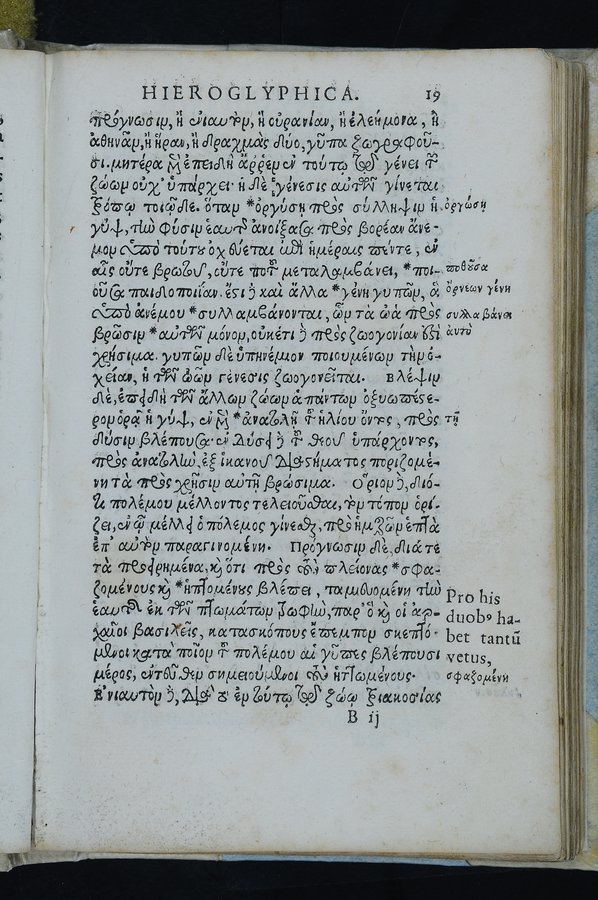 HIEROGLYPHICA. 19
πρόγνωσιν, ἢ ἐνιαυτὸν, ἢ οὐρανίαν, ἢ ἐλεήμονα, ἢ
ἀθηνᾶν, ἢ ἥραν, ἢ δραχμὰς δύο, γῦπα ζωγραφοῦ-
σι. μητέρα μὲν ἐπειδὴ ἄῤῥεν ἐν τούτῳ τῷ γένει τῶν
ζώων οὐχ᾽ ὑπάρχει· ἡ δὲ γένεσις αὐτῶν γίνεται
τρόπῳ τοιῷδε. ὅταν *ὀργύσῃ πρὸς σύλληψιν ἡ
γὺψ, τὴν φύσιν ἑαυτῆς ἀνοίξασα πρὸς βορέαν ἄνε-
μον ὑπὸ τούτου ὀχεύεται ἐπὶ ἡμέρας πέντε, ἐν
αἷς οὔτε βρωτοῦ, οὔτε ποτοῦ μεταλαμβάνει, *ποι-
οῦσα παιδοποιΐαν. ἔστι δὲ καὶ ἄλλα *γένη γυπῶν, ἃ
ὑπὸ ἀνέμου *συλλαμβάνονται, ὧν τὰ ὠὰ πρὸς
βρῶσιν *αὐτῶν μόνον, οὐκέτι δὲ πρὸς ζωογονίαν ἐστὶ
χρήσιμα. γυπῶν δὲ ὑπηνέμιον ποιουμένων τὴν ὀ-
χείαν, ἡ τῶν ὠῶν γένεσις ζωογονεῖται. Βλέψιν
δὲ, ἐπειδὴ τῶν ἄλλων ζώων ἁπάντων ὀξυωπέστε-
ρον ὁρᾷ ἡ γὺψ, ἐν μὲν *ἀνατολῇ τοῦ ἡλίου ὄντος, πρὸς
δύσιν βλέπουσα ἐν δύσει δὲ τοῦ θεοῦ ὑπάρχοντος,
πρὸς ἀνατολὴν, ἐξ ἱκανοῦ διαστήματος ποριζομέ-
νη τὰ πρὸς χρῆσιν αὐτῇ βρώσιμα. Ὅριον δὲ, διό-
τι πολέμου μέλλοντος τελειοῦσθαι, τὸν τόπον ὁρί-
ζει, ἐν ᾧ μέλλει ὁ πόλεμος γίνεσθαι, πρὸ ἡμερῶν ἑπτὰ
ἐπ᾽ αὐτὸν παραγινομένη. Πρόγνωσιν δὲ, διά τε
τὰ προειρημένα, καὶ ὅτι πρὸς τοὺς πλείονας *σφα-
ζομένους καὶ *ἡττομένους βλέπει, ταμιευομένη τὴν
ἑαυτῆς ἐκ τῶν πτωμάτων τροφὴν, παρ᾽ ὃ καὶ οἱ ἀρ-
χαῖοι βασιλεῖς, κατασκόπους ἔπεμπον σκεπτό-
μενοι κατὰ ποῖον τοῦ πολέμου αἱ γῦπες βλέπουσι
μέρος, ἐντεῦθεν σημειούμενοι τοὺς ἡττωμένους.
Ἐνιαυτὸν δὲ, διὰ τὸ ἐν τούτῳ τῷ ζώῳ τριακοσίας
B ij
ὀργώσῃ
ποθοῦσα
ὄρνεων γένη
συλλαβάνει
αὐτῶ
τῇ
Pro his
duobꝰ ha-
bet tantū
vetus,
σφαζομένη